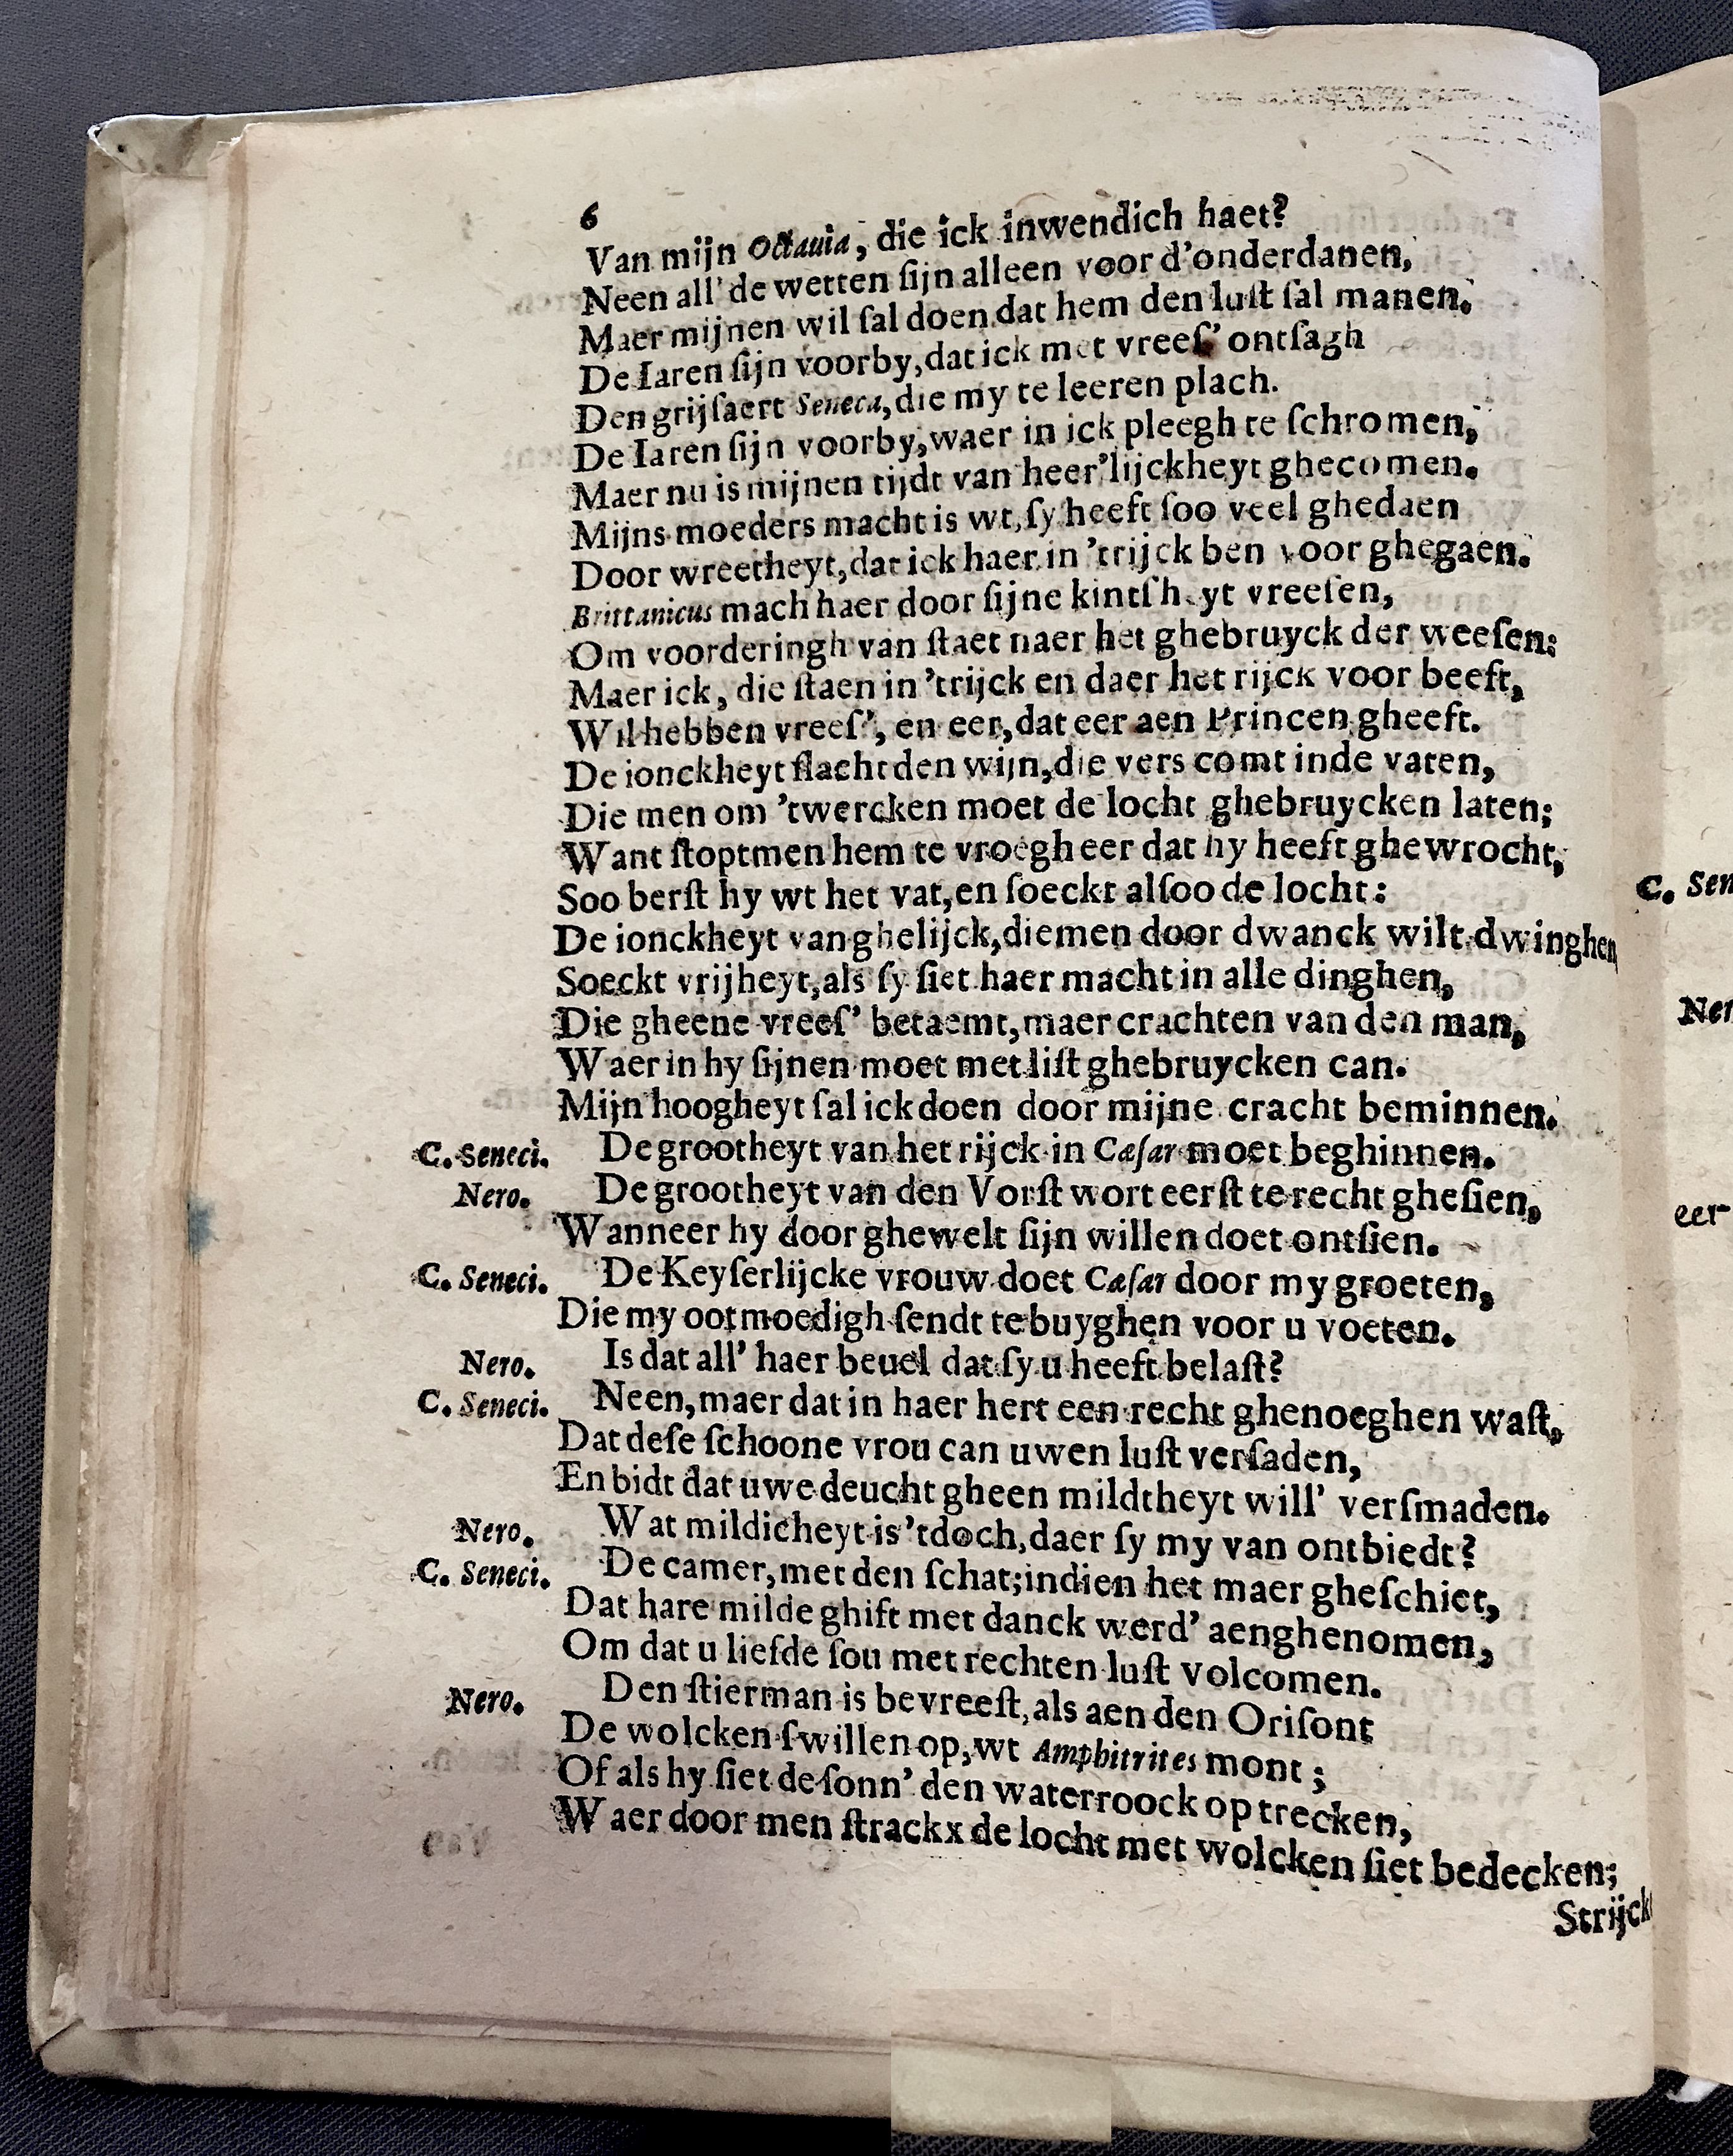 6
Van mijn Octauia, die ick inwendich haet?
Neen all' de wetten sijn alleen voor d'onderdanen,
Maer mijnen wil sal doen dat hem den lust sal manen.
De Iaren sijn voorby, dat ick met vrees' ontsagh
Den grijsaert Seneca, die my te leeren plach.
De Iaren sijn voorby, waer in ick pleegh te schromen,
Maer nu is mijnen tijdt van heer'lijckheyt ghecomen.
Mijns moeders macht is wt, sy heeft soo veel ghedaen
Door wreetheyt, dat ick haer in 'trijck ben voor ghegaen.
Brittanicus mach haer door sijne kintsheyt vreesen,
Om voorderingh van staet naer het ghebruyck der weesen:
Maer ick, die staen in 'trijck en daer het rijck voor beeft,
Wil hebben vrees', en eer, dat eer aen Princen gheeft.
De ionckheyt slacht den wijn, die vers comt inde vaten,
Die men om 'twercken moet de locht ghebruycken laten;
Want stoptmen hem te vroegh eer dat hy heeft ghewrocht,
Soo berst hy wt het vat, en soeckt alsoo de locht:
De ionckheyt van ghelijck, diemen door dwanck wilt dwinghen
Soeckt vrijheyt, als sy siet haer macht in alle dinghen,
Die gheene vrees' betaemt, maer crachten van den man,
Waer in hy sijnen moet met list ghebruycken can.
Mijn hoogheyt sal ick doen door mijne cracht beminnen.
C. Seneci. De grootheyt van het rijck in Cæsar moet beghinnen.
Nero. De grootheyt van den Vorst wort eerst te recht ghesien,
Wanneer hy door ghewelt sijn willen doet ontsien.
C. Seneci. De Keyserlijcke vrouw doet Cæsar door my groeten,
Die my ootmoedigh sendt te buyghen voor u voeten.
Nero. Is dat all' haer beuel dat sy u heeft belast?
C. Seneci. Neen, maer dat in haer hert een recht ghenoeghen wast,
Dat dese schoone vrou can uwen lust versaden,
En bidt dat uwe deucht gheen mildtheyt will' versmaden.
Nero. Wat mildicheyt is 'tdoch, daer sy my van ontbiedt?
C. Seneci. De camer, met den schat; indien het maer gheschiet,
Dat hare milde ghift met danck werd' aenghenomen,
Om dat u liefde sou met rechten lust volcomen.
Nero. Den stierman is bevreest, als aen den Orisont
De wolcken swillen op, wt Amphitrites mont;
Of als hy siet de sonn' den waterroock op trecken,
Waer door men strackx de locht met wolcken siet bedecken;
Strijck
C. Sen
Ner
eer